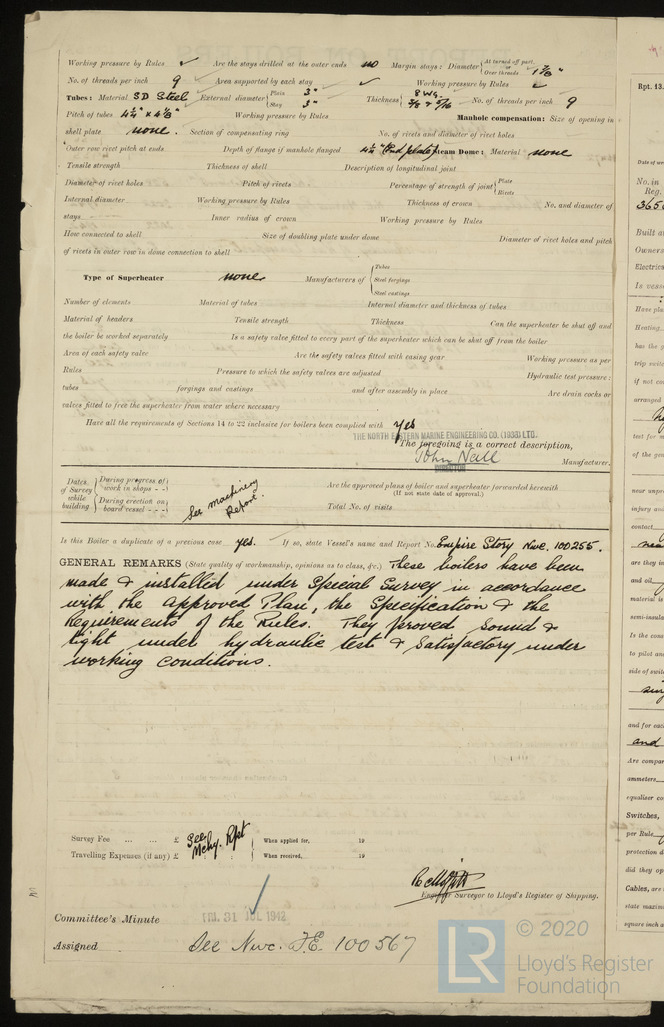 Working pressure by Rules ✓ Are the stays drilled at the outer ends no Margin stays: Diameter { At turned off part, Over threads 1 7/8"
No. of threads per inch 9 Area supported by each stay ✓ Working pressure by Rules ✓
Tubes: Material SD Steel External diameter { Plain 3" Stay 3" Thickness { 8 WG. No. of threads per inch 9
Pitch of tubes 4¼" x 4⅛" Working pressure by Rules Manhole compensation: Size of opening in
shell plate none. Section of compensating ring No. of rivets and diameter of rivet holes
Outer row rivet pitch at ends Depth of flange if manhole flanged 4¼" (End plate) Steam Dome: Material none
Tensile strength Thickness of shell Description of longitudinal joint
Diameter of rivet holes Pitch of rivets Percentage of strength of joint { Plate Rivets
Internal diameter Working pressure by Rules Thickness of crown No. and diameter of
stays Inner radius of crown Working pressure by Rules
How connected to shell Size of doubling plate under dome Diameter of rivet holes and pitch
of rivets in outer row in dome connection to shell
Type of Superheater none. Manufacturers of { Tubes Steel forgings Steel castings
Number of elements Material of tubes Internal diameter and thickness of tubes
Material of headers Tensile strength Thickness Can the superheater be shut off and
the boiler be worked separately Is a safety valve fitted to every part of the superheater which can be shut off from the boiler
Area of each safety valve Are the safety valves fitted with easing gear Working pressure as per
Rules Pressure to which the safety valves are adjusted Hydraulic test pressure:
tubes forgings and castings and after assembly in place Are drain cocks or
valves fitted to free the superheater from water where necessary
Have all the requirements of Sections 14 to 22 inclusive for boilers been complied with Yes
THE NORTH EASTERN MARINE ENGINEERING CO. (1938) LTD.
The foregoing is a correct description,
John Neill
Manufacturer.
Dates of Survey while building { During progress of work in shops - - During erection on board vessel - - - See machinery Report. Are the approved plans of boiler and superheater forwarded herewith
(If not state date of approval.)
Total No. of visits
Is this Boiler a duplicate of a previous case yes. If so, state Vessel's name and Report No. Empire Story Nwc. 100255.
GENERAL REMARKS (State quality of workmanship, opinions as to class, &c.) These boilers have been
made & installed under Special Survey in accordance
with the approved Plan, the Specification & the
Requirements of the Rules. They proved sound &
tight under hydraulic test & satisfactory under
working conditions.
Survey Fee ... ... £ See Mchy. Rpt When applied for, 19
Travelling Expenses (if any) £ : : When received, 19
Engineer Surveyor to Lloyd's Register of Shipping.
Committee's Minute FRI. 31 JUL 1942
Assigned See Nwc. F.E. 100567
Rpt. 13.
No. in
Reg.
Built at
Owners
Electric
Is vess
Have plan
Heating
has the
trip switc
if not co
arranged
test for
of the go
near unpr
injury and
contact
are they in
and oil
material
semi-insula
Is the cons
to pilot an
side of swit
and for eac
and
Are compar
ammeters
equaliser co
Switches,
per Rule
protection d
did they op
Cables, are
state maxim
square inch
LR
© 2020
Lloyd's Register
Foundation